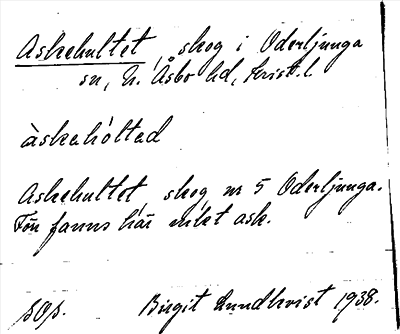 Askehultet, skog i Oderljunga
sn, N. Åsbo hd, Krist. l
àskehóltad
Askehultet, skog nr 5 Oderljunga.
Förr fanns här mket ask.
Birgit Lundkvist 1938.